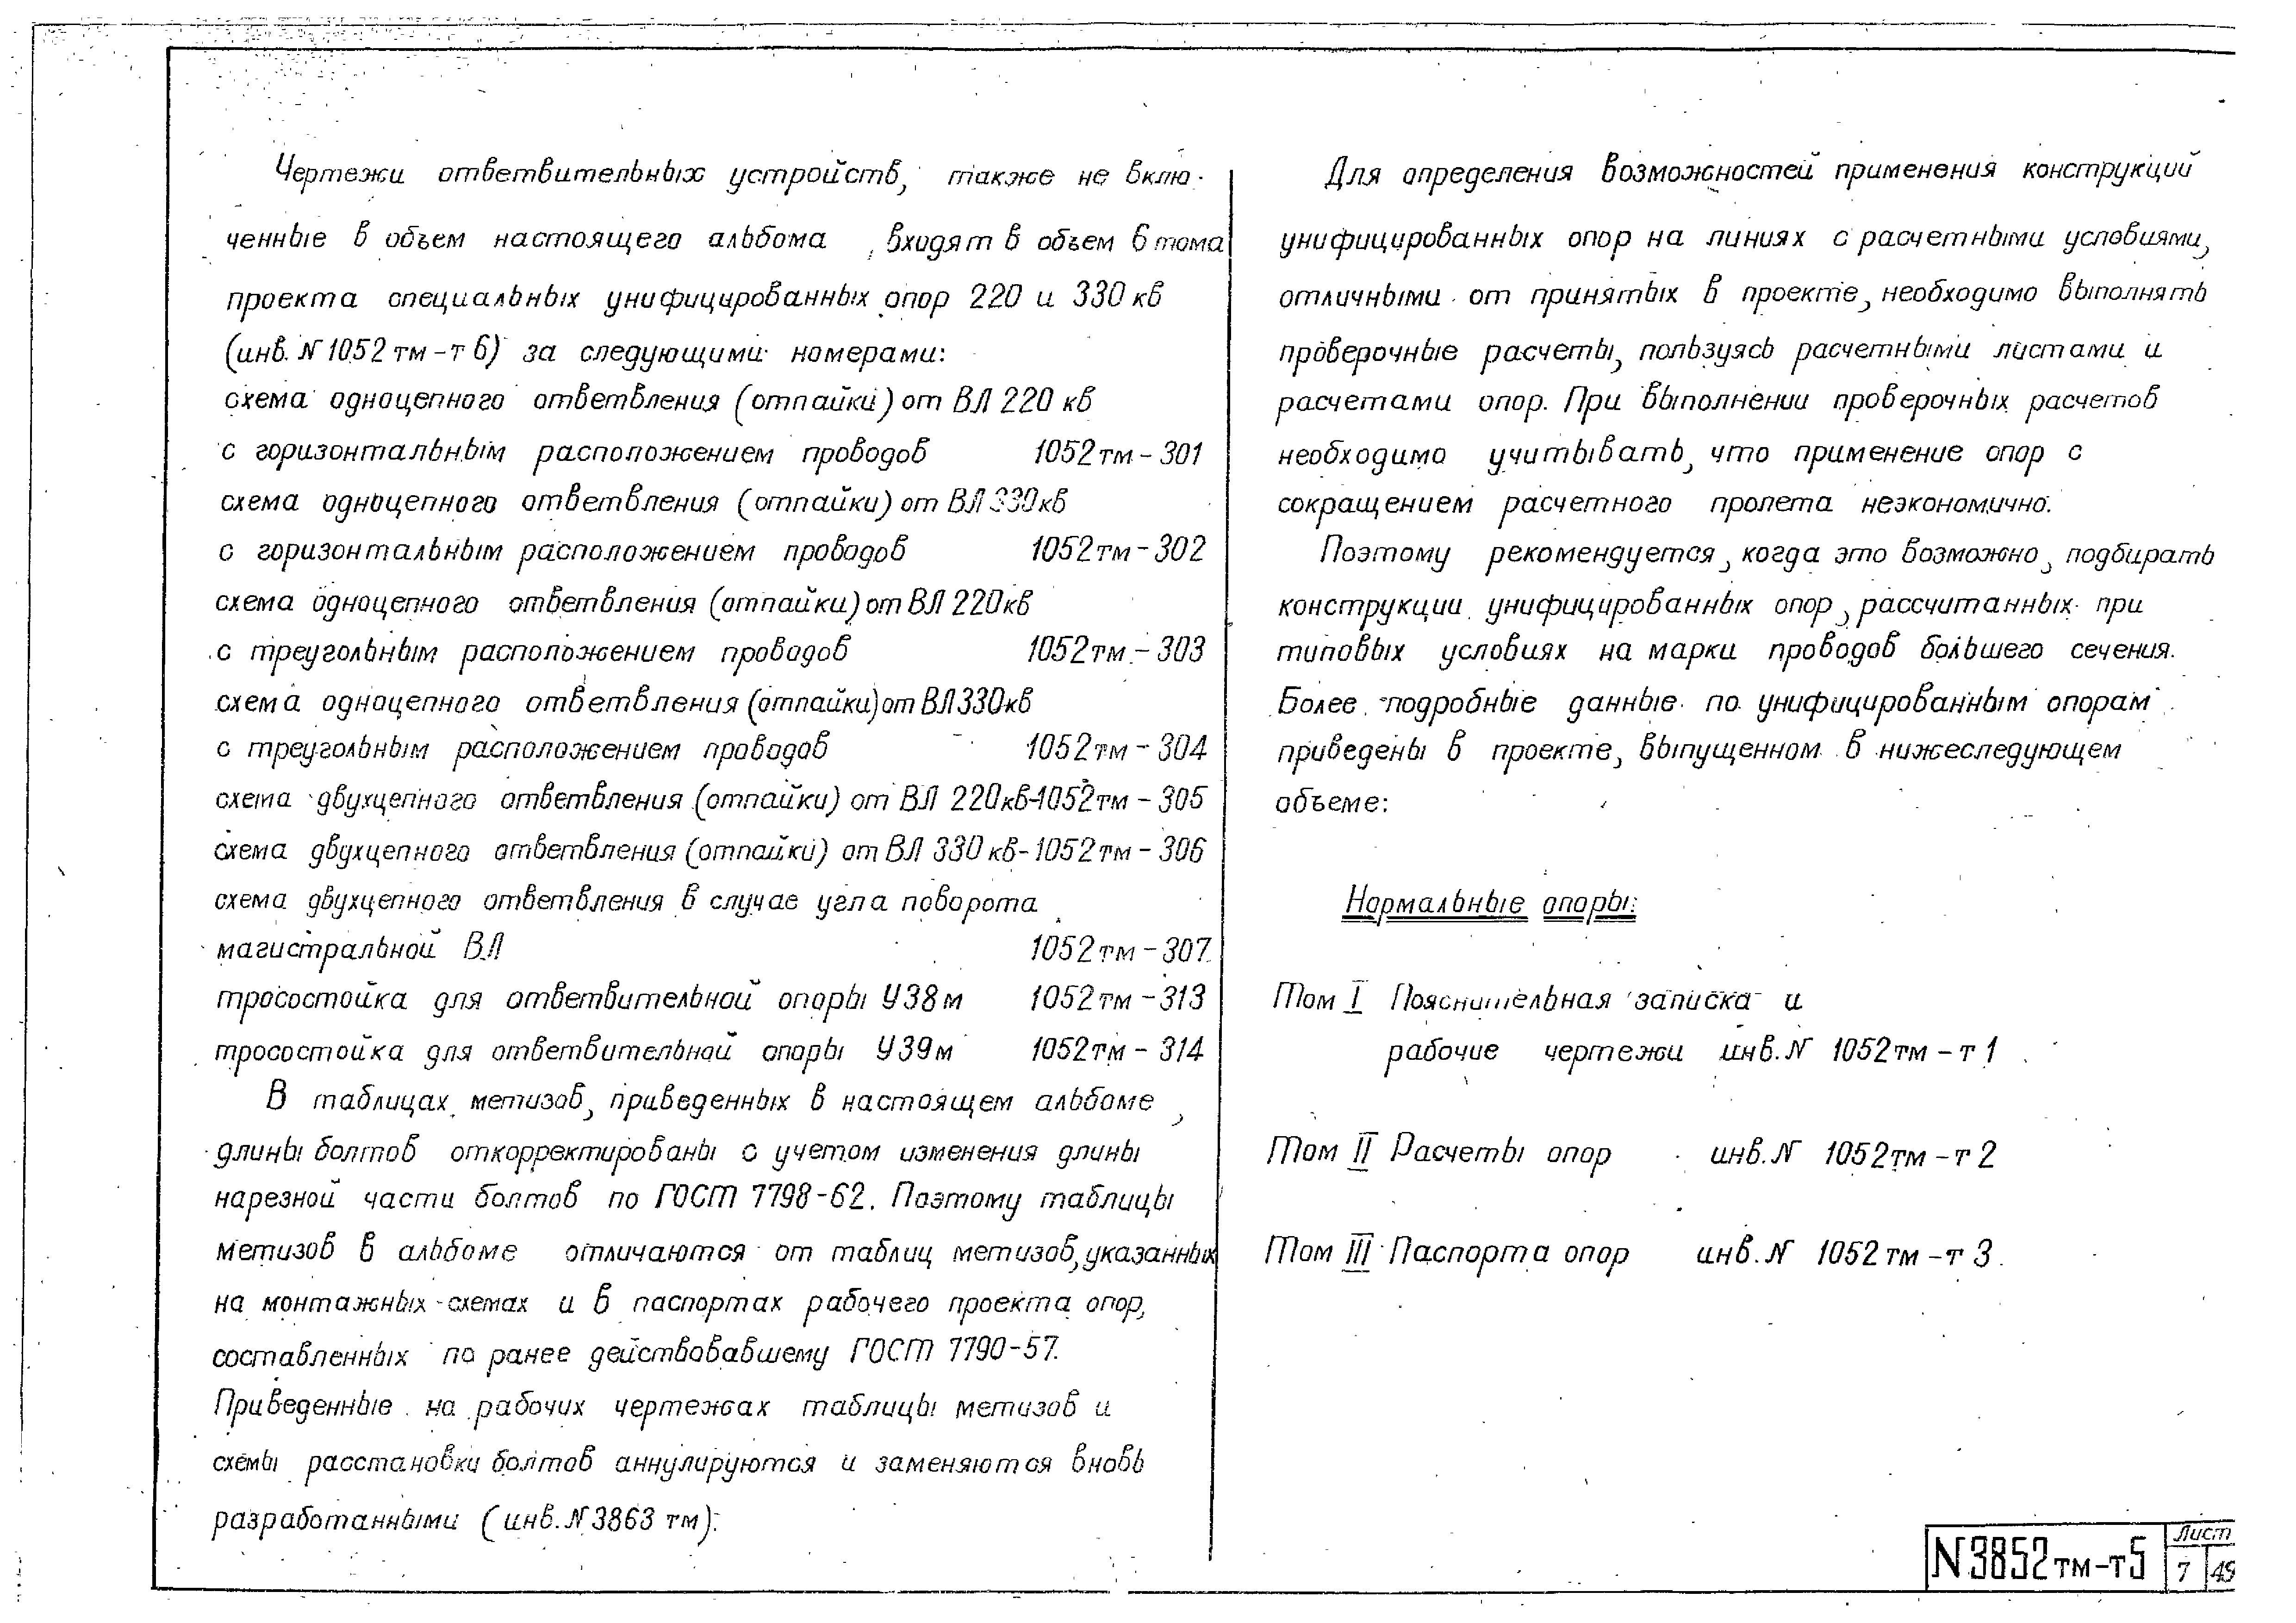 Чертежи ответвительных устройств, также не вклю-
ченные в объем настоящего альбома, входят в объем 6 тома
проекта специальных унифицированных опор 220 и 330 кв
(инв. N 1052 тм-т 6) за следующими номерами:
схема одноцепного ответвления (отпайки) от ВЛ 220 кв
с горизонтальным расположением проводов 1052 тм - 301
схема одноцепного ответвления (отпайки) от ВЛ 330 кв
с горизонтальным расположением проводов 1052 тм - 302
схема одноцепного ответвления (отпайки) от ВЛ 220 кв
с треугольным расположением проводов 1052 тм - 303
схема одноцепного ответвления (отпайки) от ВЛ 330 кв
с треугольным расположением проводов 1052 тм - 304
схема двухцепного ответвления (отпайки) от ВЛ 220 кв-1052 тм - 305
схема двухцепного ответвления (отпайки) от ВЛ 330 кв-1052 тм - 306
схема двухцепного ответвления в случае угла поворота
магистральной ВЛ 1052 тм - 307
тросостойка для ответвительной опоры У38м 1052 тм - 313
тросостойка для ответвительной опоры У39м 1052 тм - 314
В таблицах метизов, приведенных в настоящем альбоме,
длины болтов откорректированы с учетом изменения длины
нарезной части болтов по ГОСТ 7798-62. Поэтому таблицы
метизов в альбоме отличаются от таблиц метизов, указанных
на монтажных схемах и в паспортах рабочего проекта опор,
составленных по ранее действовавшему ГОСТ 7790-57.
Приведенные на рабочих чертежах таблицы метизов и
схемы расстановки болтов аннулируются и заменяются вновь
разработанными (инв. N 3863 тм).
Для определения возможностей применения конструкций
унифицированных опор на линиях с расчетными условиями,
отличными от принятых в проекте, необходимо выполнять
проверочные расчеты, пользуясь расчетными листами и
расчетами опор. При выполнении проверочных расчетов
необходимо учитывать, что применение опор с
сокращением расчетного пролета неэкономично.
Поэтому рекомендуется, когда это возможно, подбирать
конструкции унифицированных опор, рассчитанных при
типовых условиях на марки проводов большего сечения.
Более подробные данные по унифицированным опорам
приведены в проекте, выпущенном в нижеследующем
объеме:
Нормальные опоры:
Том I Пояснительная записка и
рабочие чертежи инв. N 1052 тм - т 1
Том II Расчеты опор инв. N 1052 тм - т 2
Том III Паспорта опор инв. N 1052 тм - т 3
N 3852 тм-т5
Лист
7 49